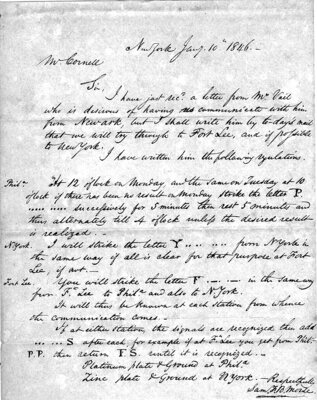 New York Jany. 10th 1846.
Mr Cornell
Sir,
I have just recd. a letter from Mr Vail
who is desirous of having us communicate with him
from Newark, but I shall write him by to-day's mail
that we will try through to Fort Lee, and if possible
to New York.
I have written him the following regulations.
Phila. At 12 o'clock on Monday, and the same on Tuesday at 10
o'clock if there has been no result on Monday strike the letter P.
..... ..... successively for 5 minutes then rest 5 minutes and
thus alternately till 4 o'clock unless the desired result
is realized.
N. York. I will strike the letter Y .. .. .. .. from N York in
the same way if all is clear for that purpose at Fort
Lee, if not
Fort Lee You will strike the letter F in the same way
from F. Lee to Phil and also to N York.
It will thus be known at each station from whence
the communication comes.
If at either station, the signals are recognized then add
... ... S after each, for example if at F. Lee you get from Phil.
P.P. then return F.S. until it is recognized.
Platinum plate & Ground at Phila.
Zinc plate & Ground at N York.
Respectfully
Sam. F. B. Morse